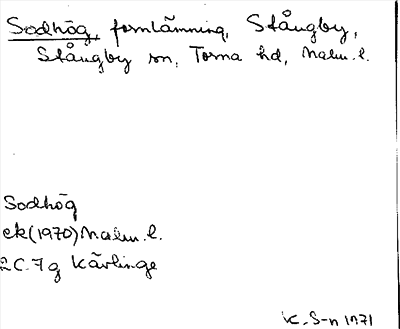 Sodhög, fornlämning, Stångby,
Stångby sn, Torna hd, Malm. l.
Sodhög
ek (1970) Malm. l.
2C 7g Kävlinge
K. S-n 1971